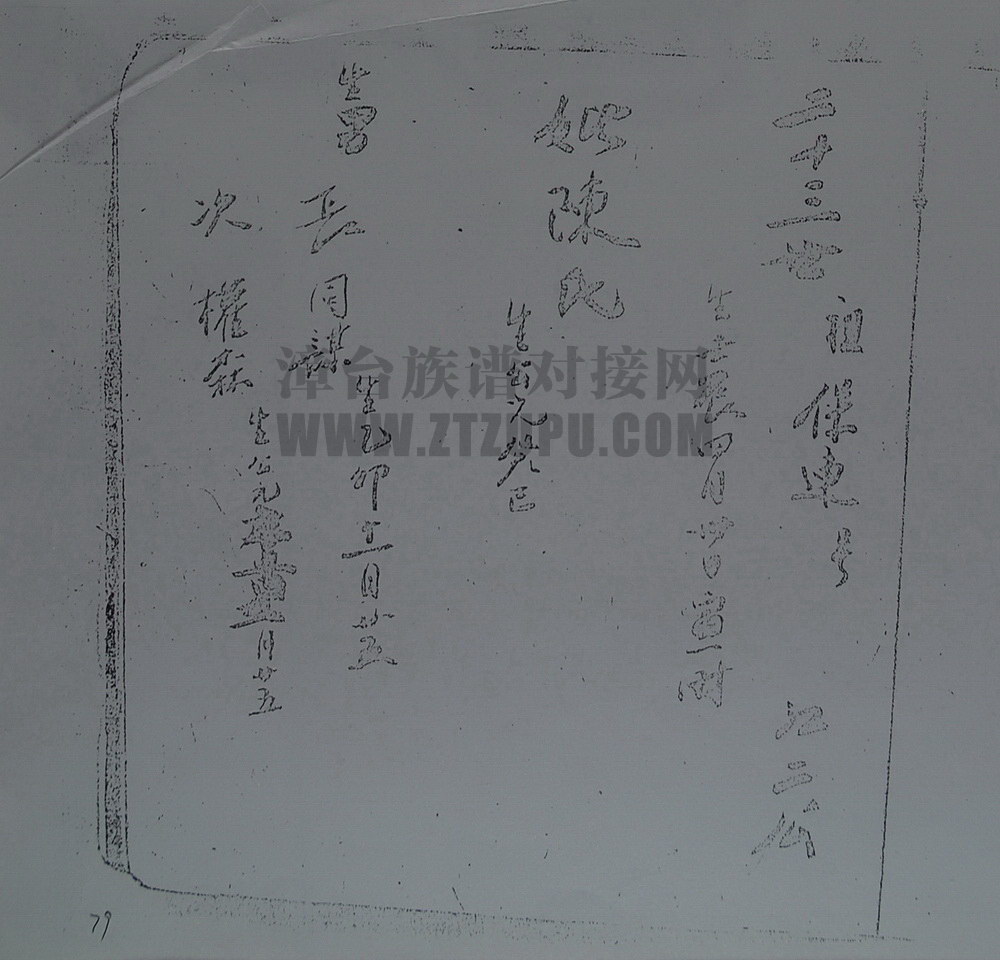 二十三世 祖保車号 江二公
生壬辰四月廿日寅时
妣陳氏
生公元癸巳
生男
長同謀生乙卯十二月廿五
次權森生公元
月廿五
漳台族谱对接网
WWW.ZTZUPU.COM
79